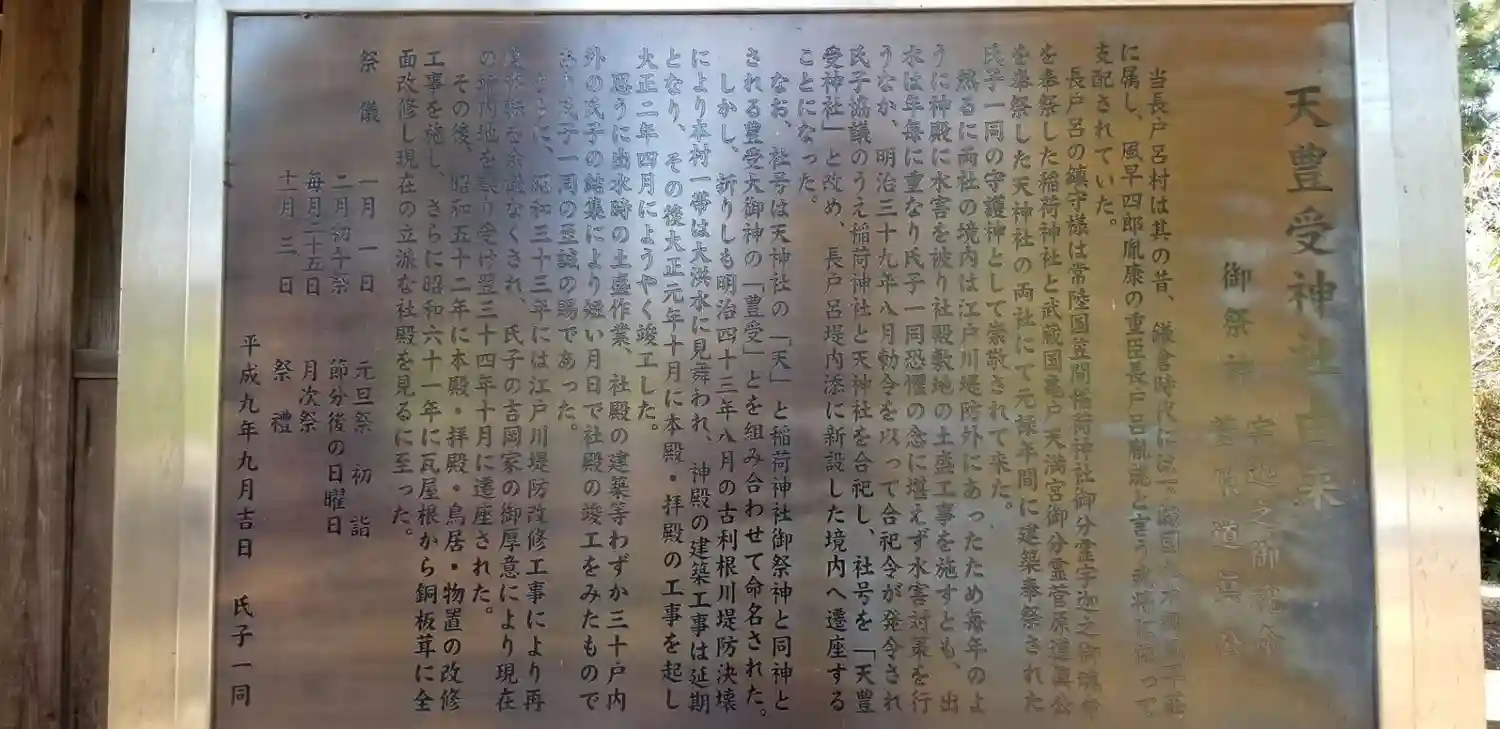 天豊受神社由来
御祭神 宇迦之御魂命
菅原道真公
当長戸呂村は其の昔、鎌倉時代に
に属し、風早四郎胤康の重臣長戸呂胤 と言う武将に依って
支配されていた。
長戸呂の鎮守様は常陸国笠間稲荷神社御分霊宇迦之御魂命
を奉祭した稲荷神社と武蔵国亀戸天満宮御分霊菅原道眞公
を奉祭した天神社の両社にて元禄年間に建築奉祭された
氏子一同の守護神として崇敬されて来た。
然るに両社の境内は江戸川堤防外にあったため毎年のよ
うに神殿に水害を被り社殿敷地の土盛工事を施すとも、出
水は年毎に重なり氏子一同恐懼の念に堪えず水害対策を行
うなか、明治三十九年八月勅令を以って合祀令が発令され
氏子協議のうえ稲荷神社と天神社を合祀し、社号を「天豊
受神社」と改め、長戸呂堤内添に新設した境内へ遷座する
ことになった。
なお、社号は天神社の「天」と稲荷神社御祭神と同神と
される豊受大御神の「豊受」とを組み合わせて命名された。
しかし、折りしも明治四十三年八月の古利根川堤防決壊
により本村一帯は大洪水に見舞われ、神殿の建築工事は延期
となり、その後大正元年十月に本殿・拝殿の工事を起し
大正二年四月にようやく竣工した。
思うに出水時の土盛作業、社殿の建築等わずか三十戸内
外の氏子の結集により短い月日で社殿の竣工をみたもので
氏子一同の至誠の賜であった。
昭和三十三年には江戸川堤防改修工事により再
度移転を余儀なくされ、氏子の吉岡家の御厚意により現在
の境内地を譲り受け翌三十四年十月に遷座された。
その後、昭和五十二年に本殿・拝殿・鳥居・物置の改修
工事を施し、さらに昭和六十一年に瓦屋根から銅板茸に全
面改修し現在の立派な社殿を見るに至った。
祭儀
一月一日 元旦祭 初詣
二月初午祭 節分後の日曜日
毎月二十五日 月次祭
十一月三日 祭禮
平成九年九月吉日 氏子一同